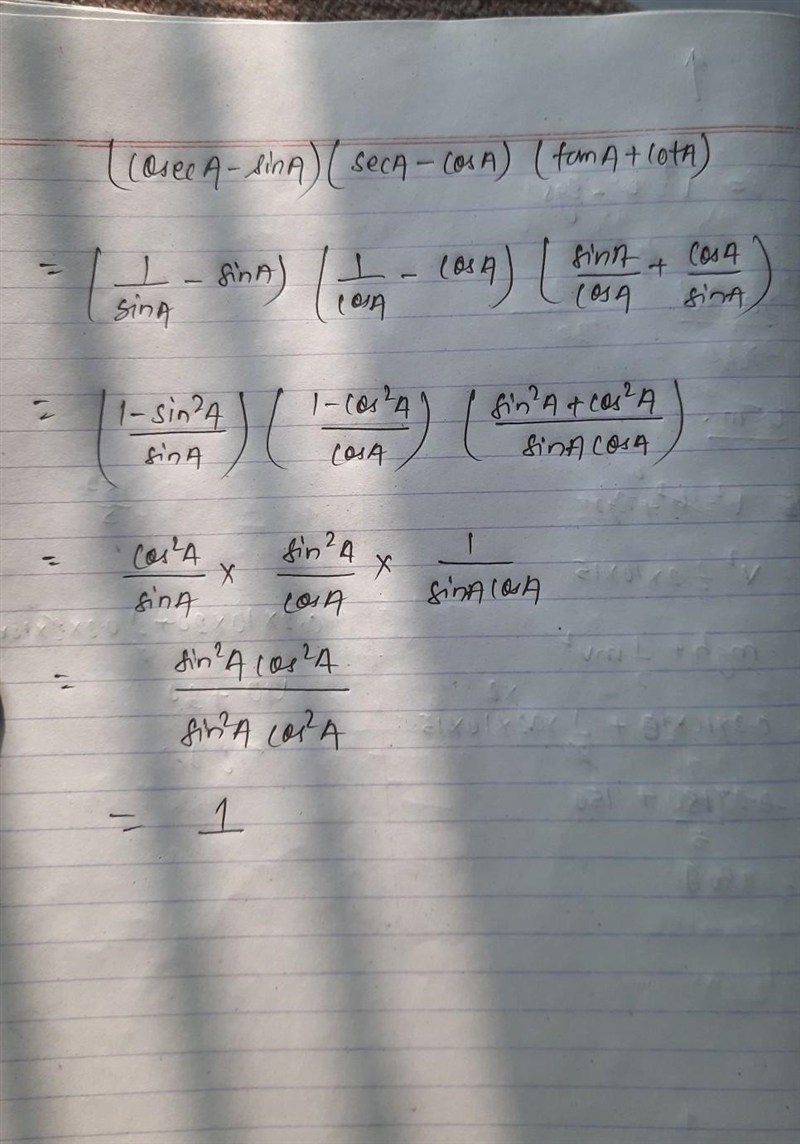 1
(CosecA - sinA) (secA - CosA) (tanA + CotA)
= (1/sinA - sinA) (1/cosA - CosA) (sinA/CosA + CosA/sinA)
= ((1 - sin²A)/sinA) ((1 - Cos²A)/CosA) ((sin²A + cos²A)/(sinA CosA))
= Cos²A/sinA × sin²A/CosA × 1/(sinA CosA)
= (sin²A Cos²A)/(sin²A Cos²A)
= 1